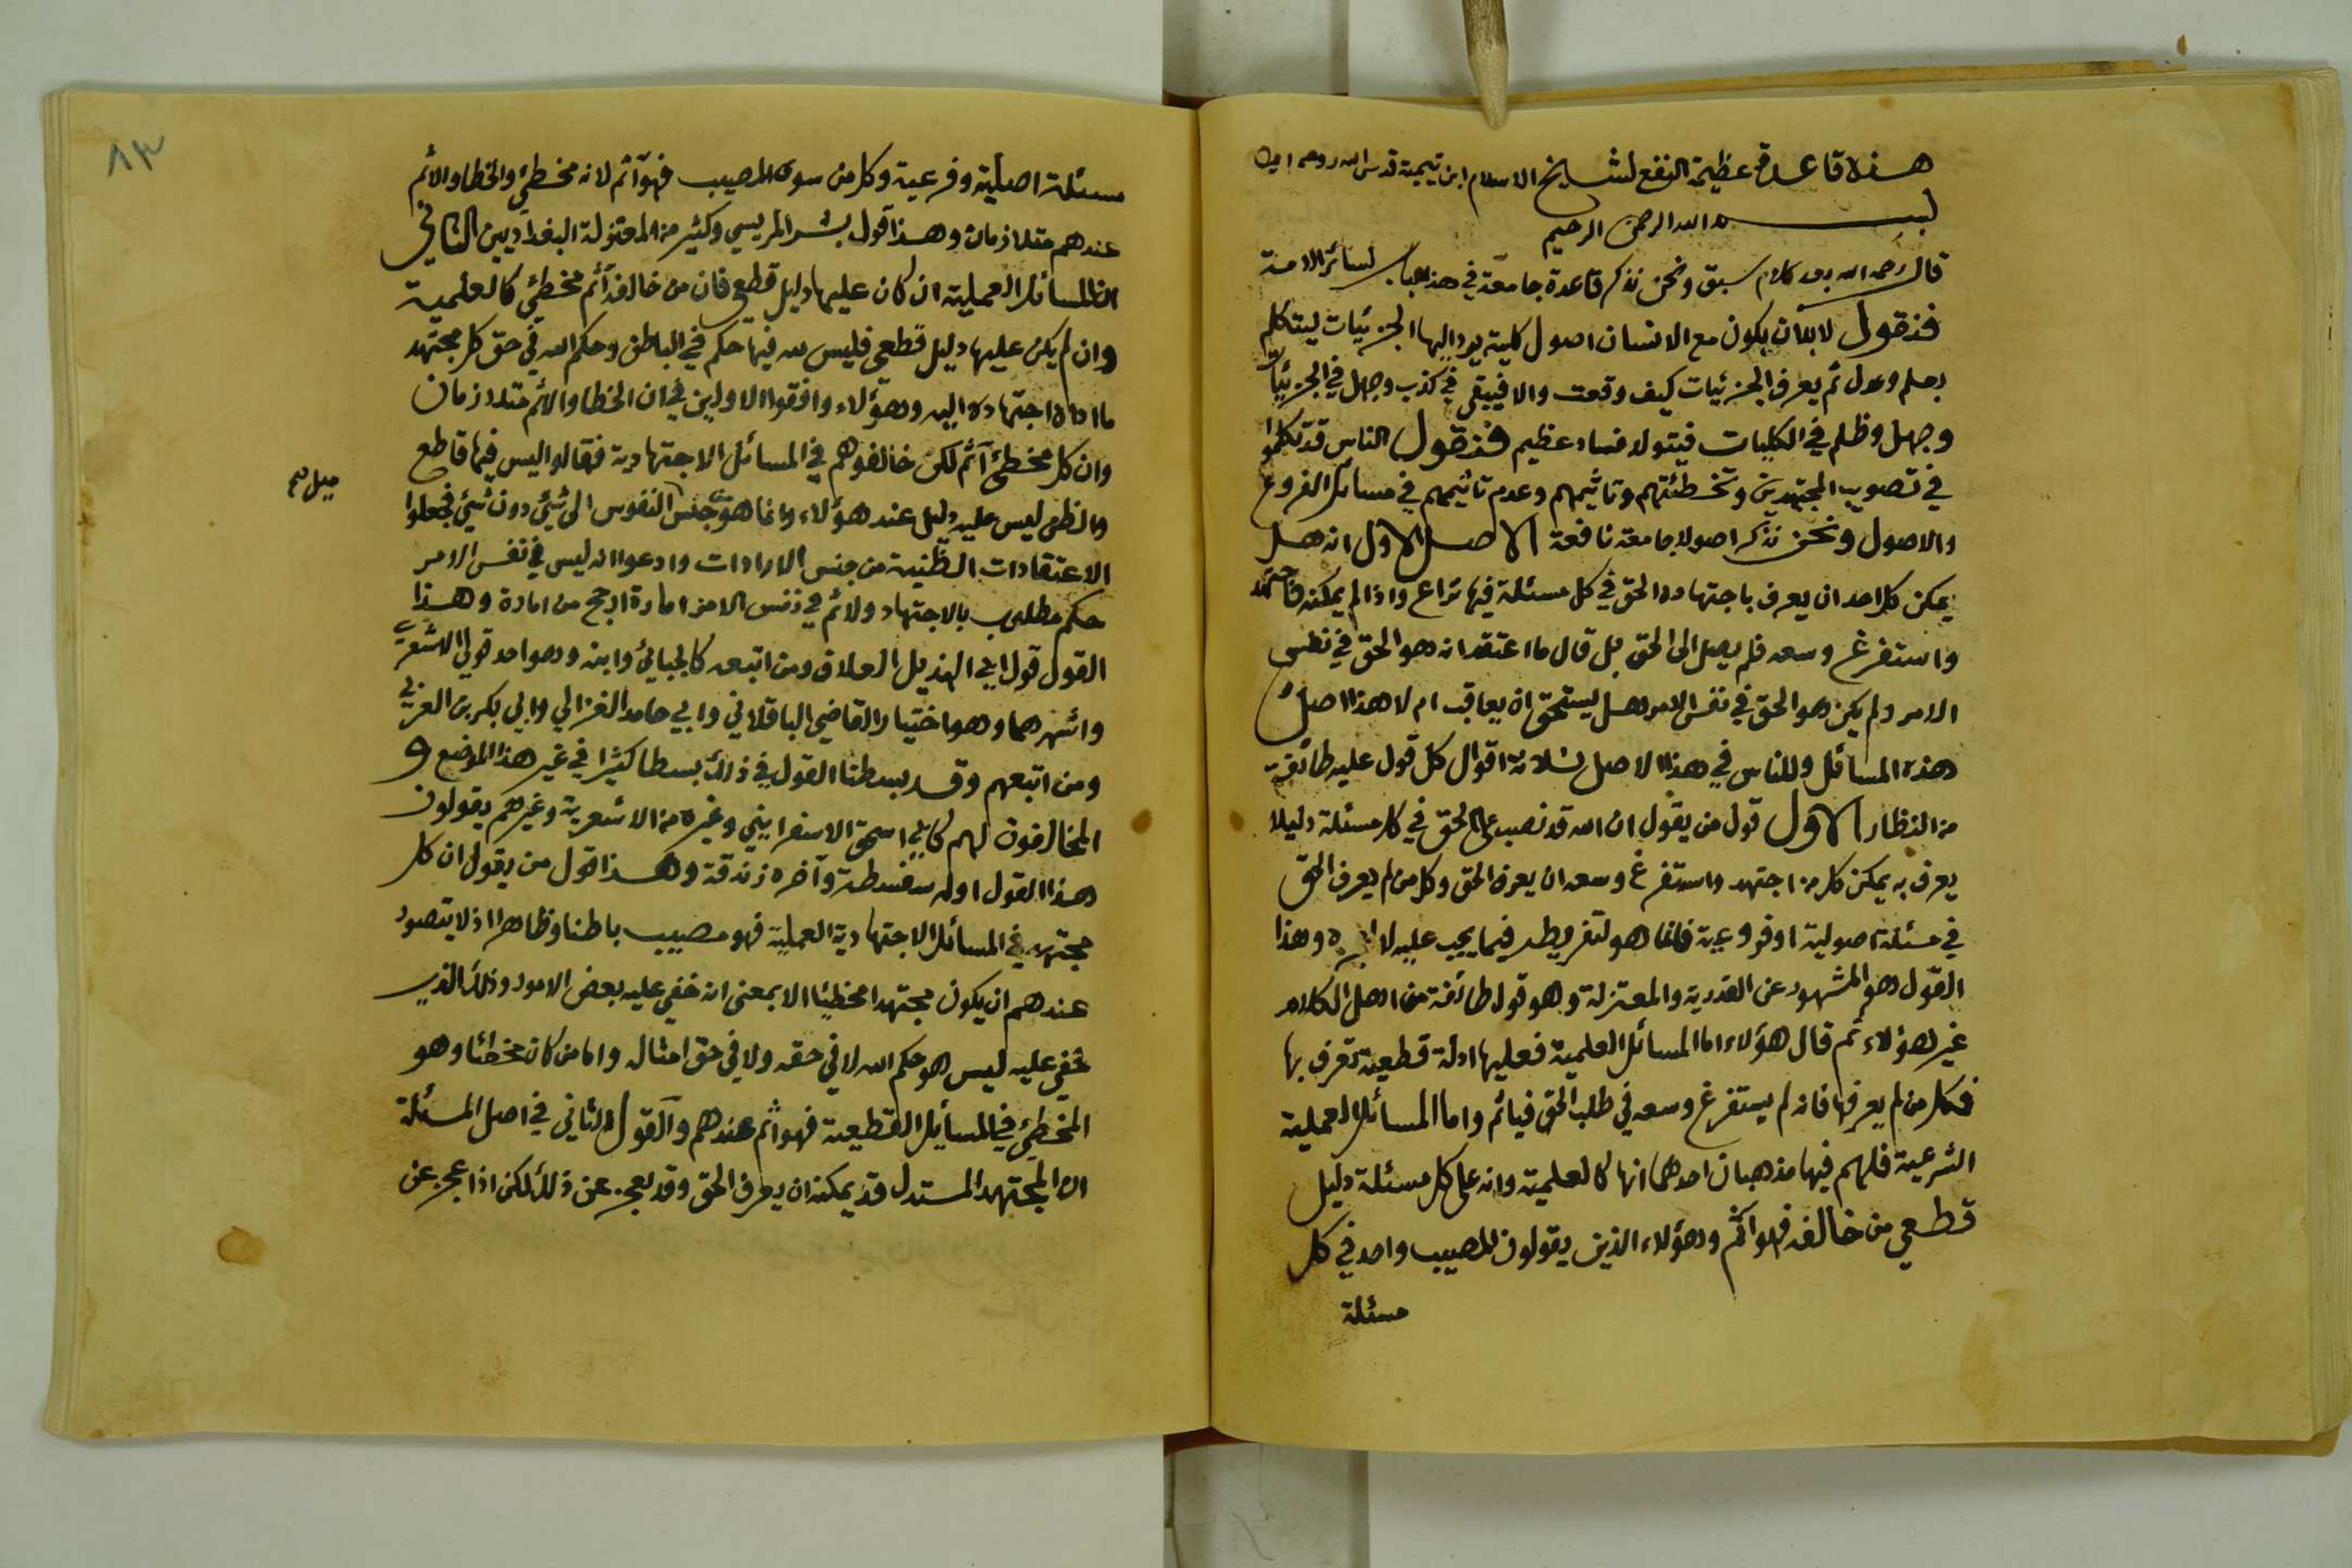 هذه قاعدة عظيمة النفع لشيخ الاسلام ابن تيمية قدس الله روحه امين
بسم الله الرحمن الرحيم
قال رحمه الله بعد كلام سبق ونحن نذكر قاعدة جامعة في هذا الباب لسائر الامة
فنقول لا بد ان يكون مع الانسان اصول كلية يرد اليها الجزئيات ليتكلم
بعلم وعدل ثم يعرف الجزئيات كيف وقعت والا فيبقى في كذب وجهل في الجزئيات
وجهل وظلم في الكليات فيتولد فساد عظيم فنقول الناس قد تكلموا
في تصويب المجتهدين وتخطئتهم وتاثيمهم وعدم تاثيمهم في مسائل الفروع
والاصول ونحن نذكر اصولا جامعة نافعة الاصل الاول انه هل
يمكن كل احد ان يعرف باجتهاده الحق في كل مسئلة فيها نزاع واذا لم يمكنه فاجتهد
واستفرغ وسعه فلم يصل الى الحق بل قال ما اعتقد انه هو الحق في نفس
الامر ولم يكن هو الحق في نفس الامر هل يستحق ان يعاقب ام لا هذا اصل
هذه المسائل وللناس في هذا الاصل ثلاثة اقوال كل قول عليه طائفة
من النظار الاول قول من يقول ان الله قد نصب على الحق في كل مسئلة دليلا
يعرف به يمكن كل من اجتهد واستفرغ وسعه ان يعرف الحق وكل من لم يعرف الحق
في مسئلة اصولية او فروعية فانما هو لتفريطه فيما يجب عليه لا لعجزه وهذا
القول هو المشهور عن القدرية والمعتزلة وهو قول طائفة من اهل الكلام
غير هؤلاء ثم قال هؤلاء اما المسائل العلمية فعليها ادلة قطعية تعرف بها
فكل من لم يعرفها فانه لم يستفرغ وسعه في طلب الحق فيائم واما المسائل العملية
الشرعية فلهم فيها مذهبان احدهما انها كالعلمية وانه على كل مسئلة دليل
قطعي من خالفه فهو آثم وهؤلاء الذين يقولون المصيب واحد في كل
مسئلة
٨٣
مسئلة اصلية وفرعية وكل من سوى المصيب فهو آثم لانه مخطئ والخطا والاثم
عندهم متلازمان وهذا قول بشر المريسي وكثير من المعتزلة البغداديين الثاني
ان المسائل العملية ان كان عليها دليل قطعي فان من خالفه آثم مخطئ كالعلمية
وان لم يكن عليها دليل قطعي فليس لله فيها حكم في الباطن وحكم الله في حق كل مجتهد
ما اداه اجتهاده اليه وهؤلاء وافقوا الاولين في ان الخطا والاثم متلازمان
وان كل مخطئ آثم لكن خالفوهم في المسائل الاجتهادية فقالوا ليس فيها قاطع
والظن ليس عليه دليل عند هؤلاء وانما هو من جنس النفوس الى شيئ دون شيئ فجعلوا
ميل صح
الاعتقادات الظنية من جنس الارادات وادعوا انه ليس في نفس الامر
حكم مطلوب بالاجتهاد ولا ثم في نفس الامر امارة ارجح من امارة وهذا
القول قول ابي الهذيل العلاف ومن اتبعه كالجبائي وابنه وهو احد قولي الاشعري
واشهرهما وهو اختيار القاضي الباقلاني وابي حامد الغزالي وابي بكر بن العربي
ومن اتبعهم وقد بسطنا القول في ذلك بسطا كثيرا في غير هذا الموضع و
المخالفون لهم كابي اسحق الاسفرايني وغيره من الاشعرية وغيرهم يقولون
هذا القول اوله سفسطة وآخره زندقة وهذا قول من يقول ان كل
مجتهد في المسائل الاجتهادية العملية فهو مصيب باطنا وظاهرا اذ لا يتصور
عندهم ان يكون مجتهدا مخطئا الا بمعنى انه خفي عليه بعض الامور وذلك الذي
خفي عليه ليس هو حكم الله لا في حقه ولا في حق امثاله واما من كان مخطئا وهو
المخطئ في المسايل القطعية فهو آثم عندهم والقول الثاني في اصل المسئلة
ان المجتهد المستدل قد يمكنه ان يعرف الحق وقد يعجز عن ذلك لكن اذا عجز عن